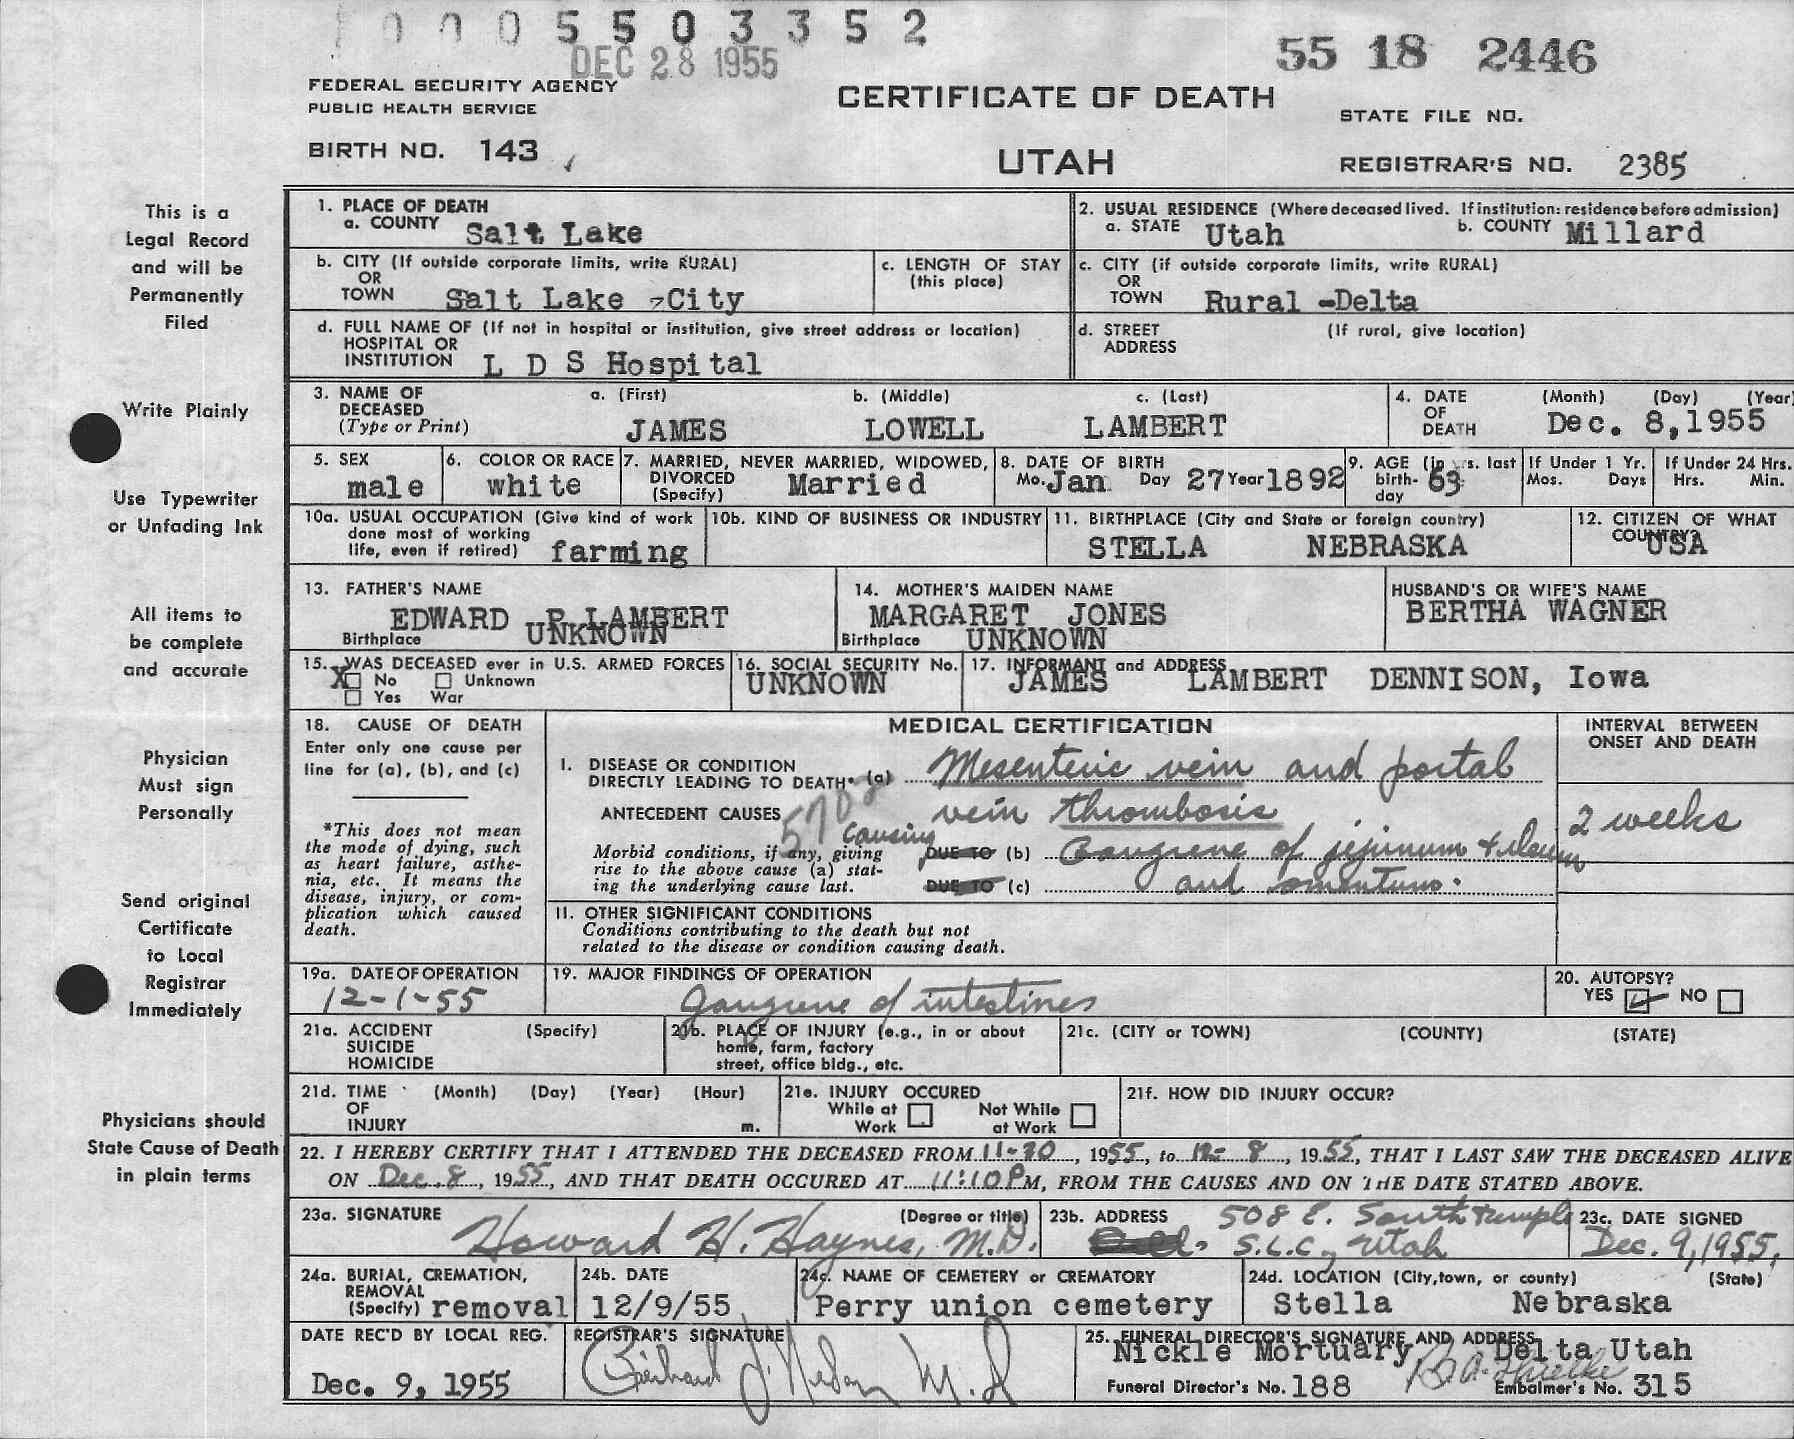 0005503352
DEC 28 1955
55 18 2446
FEDERAL SECURITY AGENCY
PUBLIC HEALTH SERVICE
CERTIFICATE OF DEATH
STATE FILE NO.
BIRTH NO. 143
UTAH
REGISTRAR'S NO. 2385
This is a
Legal Record
and will be
Permanently
Filed
Write Plainly
Use Typewriter
or Unfading Ink
All items to
be complete
and accurate
Physician
Must sign
Personally
Send original
Certificate
to Local
Registrar
Immediately
Physicians should
State Cause of Death
in plain terms
1. PLACE OF DEATH
a. COUNTY Salt Lake
2. USUAL RESIDENCE (Where deceased lived. If institution: residence before admission)
a. STATE Utah b. COUNTY Millard
b. CITY (If outside corporate limits, write RURAL)
OR
TOWN Salt Lake -City
c. LENGTH OF STAY
(this place)
c. CITY (if outside corporate limits, write RURAL)
OR
TOWN Rural -Delta
d. FULL NAME OF (If not in hospital or institution, give street address or location)
HOSPITAL OR
INSTITUTION L D S Hospital
d. STREET (If rural, give location)
ADDRESS
3. NAME OF DECEASED (Type or Print)
a. (First) b. (Middle) c. (Last)
JAMES LOWELL LAMBERT
4. DATE OF DEATH (Month) (Day) (Year)
Dec. 8,1955
5. SEX male
6. COLOR OR RACE white
7. MARRIED, NEVER MARRIED, WIDOWED,
DIVORCED (Specify) Married
8. DATE OF BIRTH
Mo. Jan Day 27 Year 1892
9. AGE (in yrs. last birth-day 63
If Under 1 Yr. Mos. Days
If Under 24 Hrs. Hrs. Min.
10a. USUAL OCCUPATION (Give kind of work
done most of working
life, even if retired) farming
10b. KIND OF BUSINESS OR INDUSTRY
11. BIRTHPLACE (City and State or foreign country)
STELLA NEBRASKA
12. CITIZEN OF WHAT
COUNTRY? USA
13. FATHER'S NAME
EDWARD P LAMBERT
Birthplace UNKNOWN
14. MOTHER'S MAIDEN NAME
MARGARET JONES
Birthplace UNKNOWN
HUSBAND'S OR WIFE'S NAME
BERTHA WAGNER
15. WAS DECEASED ever in U.S. ARMED FORCES
X No Unknown
Yes War
16. SOCIAL SECURITY No.
UNKNOWN
17. INFORMANT and ADDRESS
JAMES LAMBERT DENNISON, Iowa
18. CAUSE OF DEATH
Enter only one cause per
line for (a), (b), and (c)
*This does not mean
the mode of dying, such
as heart failure, asthe-
nia, etc. It means the
disease, injury, or com-
plication which caused
death.
MEDICAL CERTIFICATION
INTERVAL BETWEEN
ONSET AND DEATH
I. DISEASE OR CONDITION
DIRECTLY LEADING TO DEATH* (a) Mesenteric vein and portal
ANTECEDENT CAUSES vein thrombosis
2 weeks
Causing
Morbid conditions, if any, giving DUE TO (b) Gangrene of jejunum & ileum
rise to the above cause (a) stat-
ing the underlying cause last. DUE TO (c) and omentum.
II. OTHER SIGNIFICANT CONDITIONS
Conditions contributing to the death but not
related to the disease or condition causing death.
19a. DATE OF OPERATION
12-1-55
19. MAJOR FINDINGS OF OPERATION
gangrene of intestines
20. AUTOPSY?
YES NO
21a. ACCIDENT (Specify)
SUICIDE
HOMICIDE
21b. PLACE OF INJURY (e.g., in or about
home, farm, factory
street, office bldg., etc.
21c. (CITY or TOWN) (COUNTY) (STATE)
21d. TIME (Month) (Day) (Year) (Hour)
OF
INJURY m.
21e. INJURY OCCURED
While at Work Not While at Work
21f. HOW DID INJURY OCCUR?
22. I HEREBY CERTIFY THAT I ATTENDED THE DECEASED FROM 11-30, 1955, to 12-8, 1955, THAT I LAST SAW THE DECEASED ALIVE
ON Dec. 8, 1955, AND THAT DEATH OCCURED AT 11:10 PM, FROM THE CAUSES AND ON THE DATE STATED ABOVE.
23a. SIGNATURE (Degree or title)
Howard H. Haynes, M.D.
23b. ADDRESS 508 E. South Temple
S.L.C., Utah
23c. DATE SIGNED
Dec. 9, 1955.
24a. BURIAL, CREMATION,
REMOVAL
(Specify) removal
24b. DATE
12/9/55
24c. NAME OF CEMETERY or CREMATORY
Perry union cemetery
24d. LOCATION (City, town, or county) (State)
Stella Nebraska
DATE REC'D BY LOCAL REG.
Dec. 9, 1955
REGISTRAR'S SIGNATURE
M.D
25. FUNERAL DIRECTOR'S SIGNATURE AND ADDRESS
Nickle Mortuary Delta Utah
Funeral Director's No. 188 Embalmer's No. 315